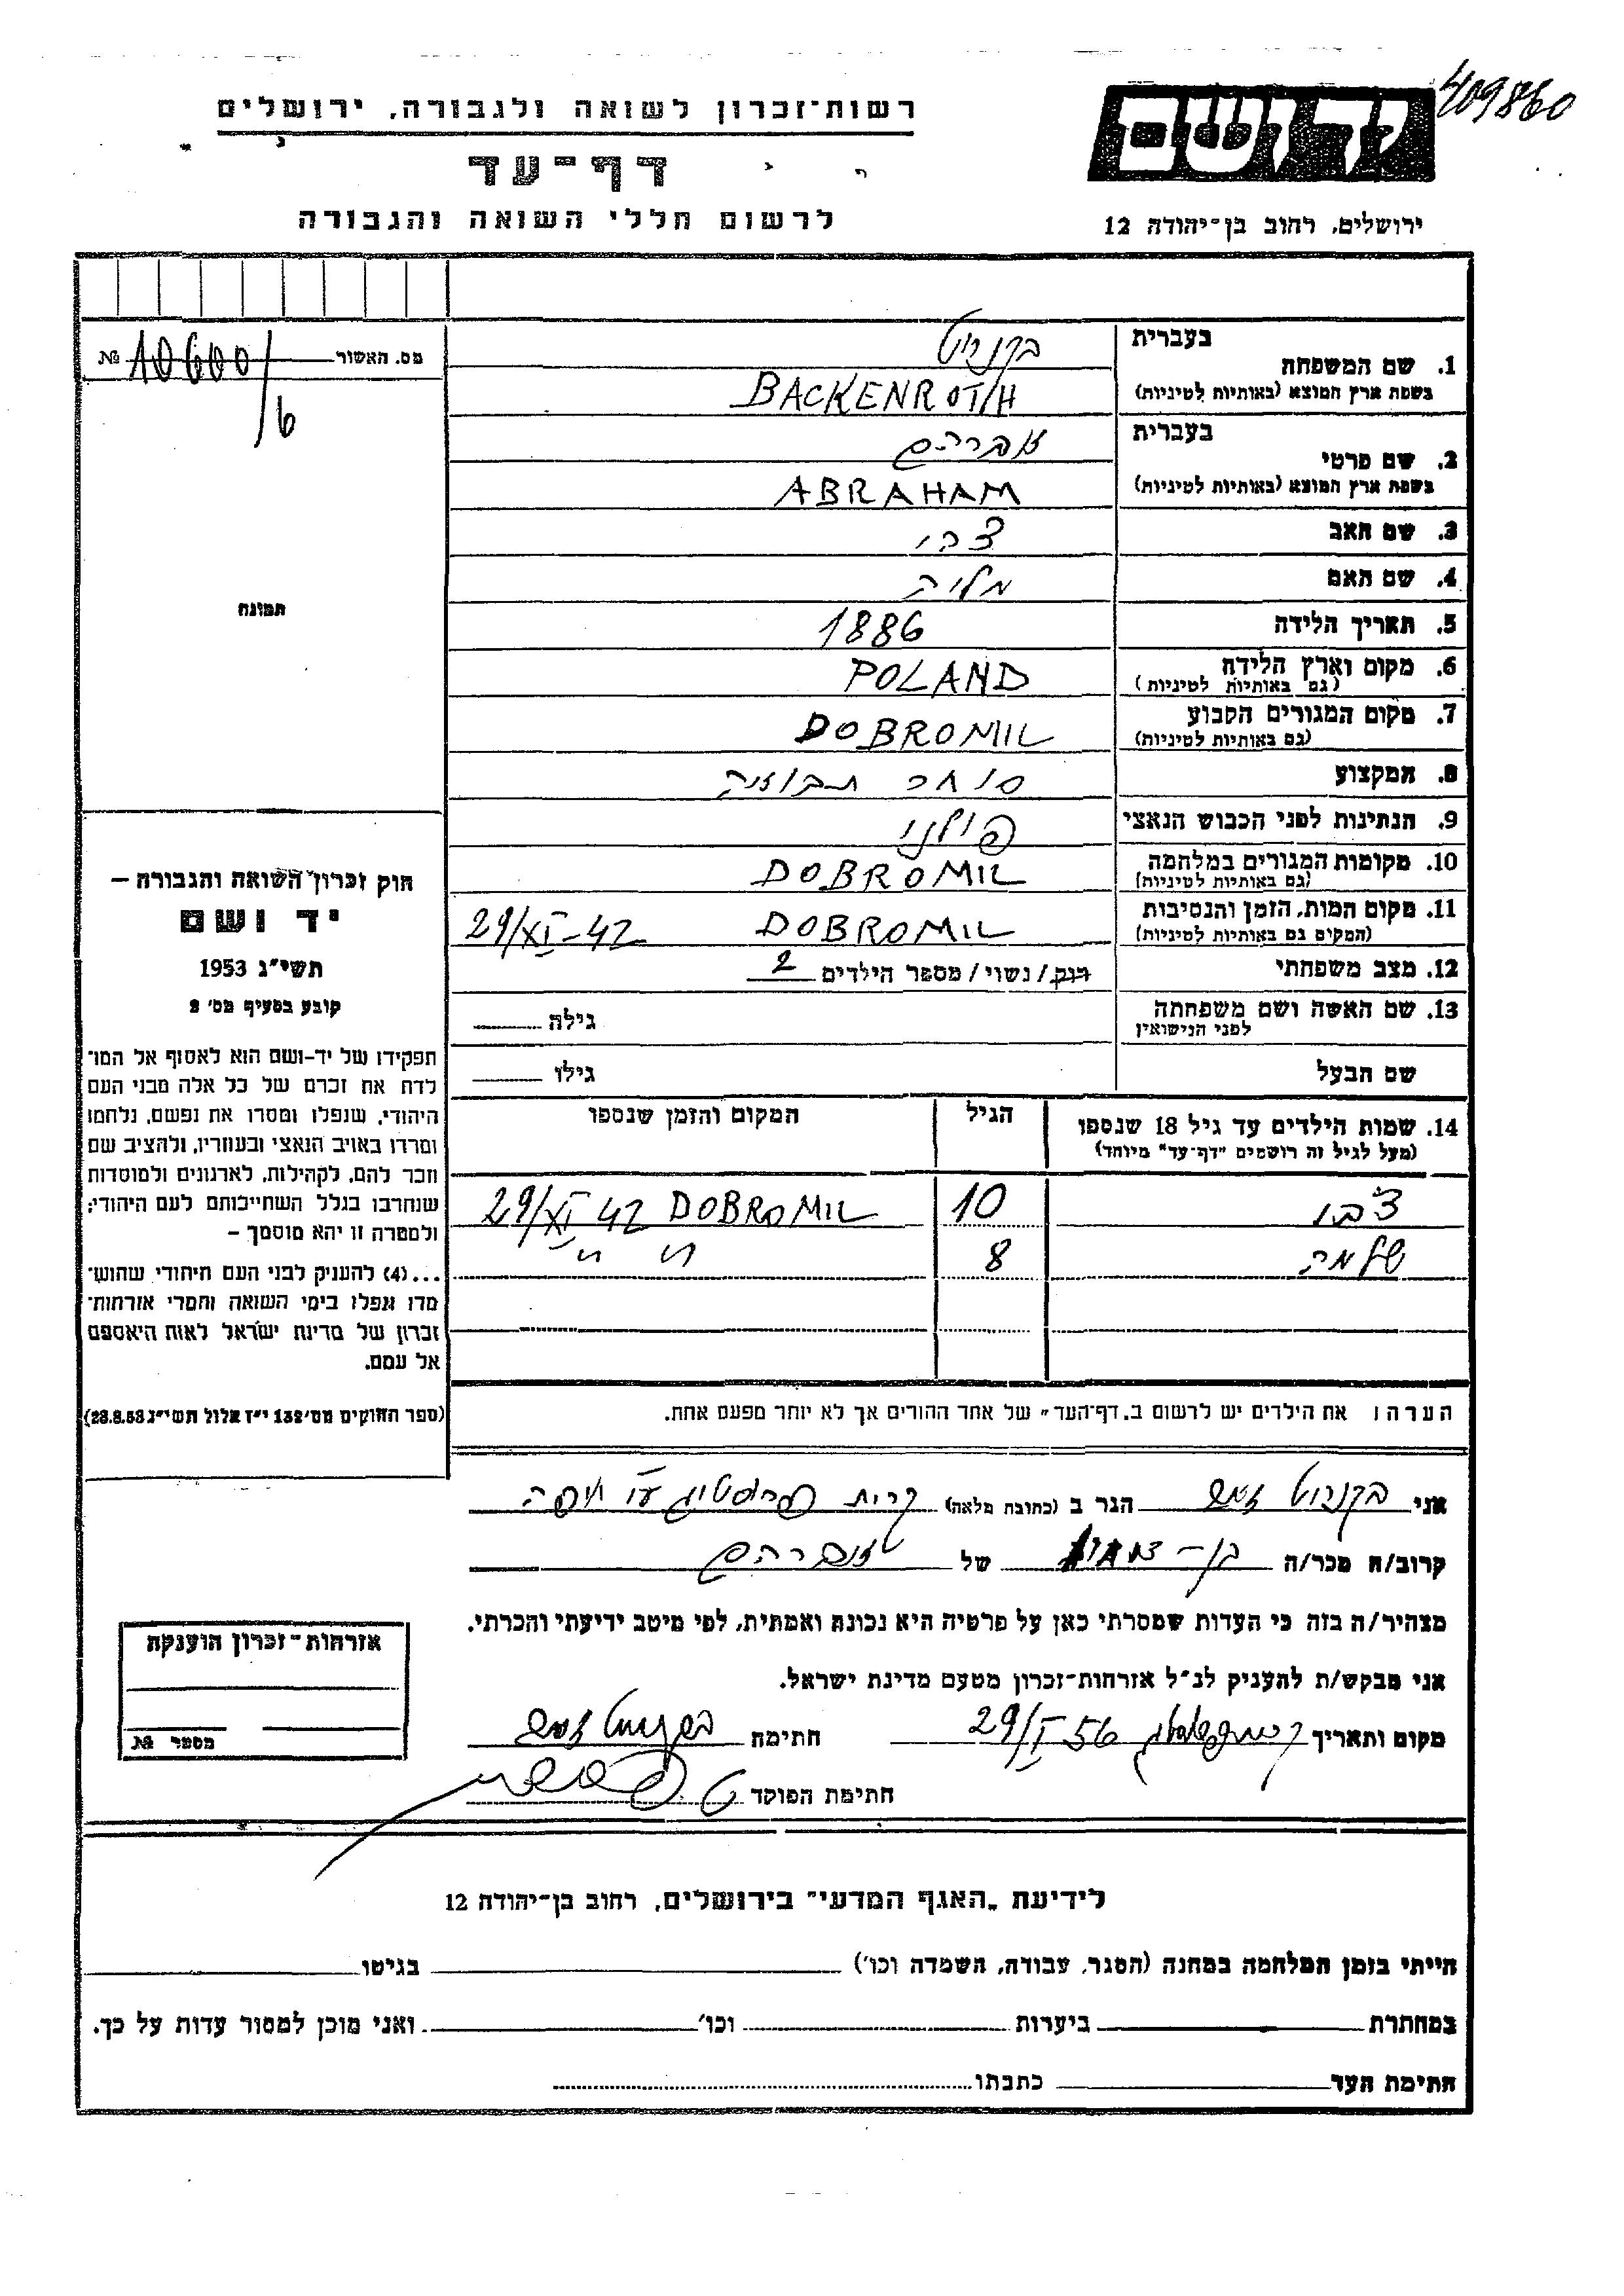 409860
יד ושם
רשות-זכרון לשואה ולגבורה, ירושלים
דף-עד
לרשום חללי השואה והגבורה
ירושלים, רחוב בן-יהודה 12
מס. האשור № 10600/6
תמונה
1. שם המשפחה
בעברית בקנרוט
בשפת ארץ המוצא (באותיות לטיניות) BACKENROTH
2. שם פרטי
בעברית אברהם
בשפת ארץ המוצא (באותיות לטיניות) ABRAHAM
3. שם האב צבי
4. שם האם מליה
5. תאריך הלידה 1886
6. מקום וארץ הלידה POLAND
(גם באותיות לטיניות)
7. מקום המגורים הקבוע DOBROMIL
(גם באותיות לטיניות)
8. המקצוע סוחר תבואה
9. הנתינות לפני הכבוש הנאצי פולני
10. מקומות המגורים במלחמה DOBROMIL
(גם באותיות לטיניות)
11. מקום המות, הזמן והנסיבות DOBROMIL 29/XI-42
(המקום גם באותיות לטיניות)
12. מצב משפחתי רוק/נשוי/מספר הילדים 2
13. שם האשה ושם משפחתה גילה
לפני הנישואין
שם הבעל גילו
14. שמות הילדים עד גיל 18 שנספו הגיל המקום והזמן שנספו
(מעל לגיל זה רושמים "דף-עד" מיוחד)
צבי 10 DOBROMIL 29/XI 42
שלמה 8 " " "
הערה: את הילדים יש לרשום ב„דף-העד" של אחד ההורים אך לא יותר מפעם אחת.
חוק זכרון השואה והגבורה –
יד ושם
תשי"ג 1953
קובע בסעיף מס' 2
תפקידו של יד-ושם הוא לאסוף אל המו־
לדת את זכרם של כל אלה מבני העם
היהודי, שנפלו ומסרו את נפשם, נלחמו
ומרדו באויב הנאצי ובעוזריו, ולהציב שם
וזכר להם, לקהילות, לארגונים ולמוסדות
שנחרבו בגלל השתייכותם לעם היהודי;
ולמטרה זו יהא מוסמך –
...(4) להעניק לבני העם היהודי שהוש־
מדו ונפלו בימי השואה והמרי אזרחות־
זכרון של מדינת ישראל לאות היאספם
אל עמם.
(ספר החוקים מס' 132 י"ז אלול תשי"ג 28.8.53)
אני בקנרוט הגר ב (כתובת מלאה) קרית
קרוב/ה מכר/ה בן- של אברהם
מצהיר/ה בזה כי העדות שמסרתי כאן על פרטיה היא נכונה ואמתית, לפי מיטב ידיעתי והכרתי.
אני מבקש/ת להעניק לנ"ל אזרחות-זכרון מטעם מדינת ישראל.
מקום ותאריך 29/I 56 חתימה בקנרוט
חתימת הפוקד
אזרחות-זכרון הוענקה
מספר №
לידיעת „האגף המדעי" בירושלים, רחוב בן-יהודה 12
הייתי בזמן המלחמה במחנה (הסגר, עבודה, השמדה וכו') בגיטו
במחתרת ביערות וכו' ואני מוכן למסור עדות על כך.
חתימת העד כתבתו